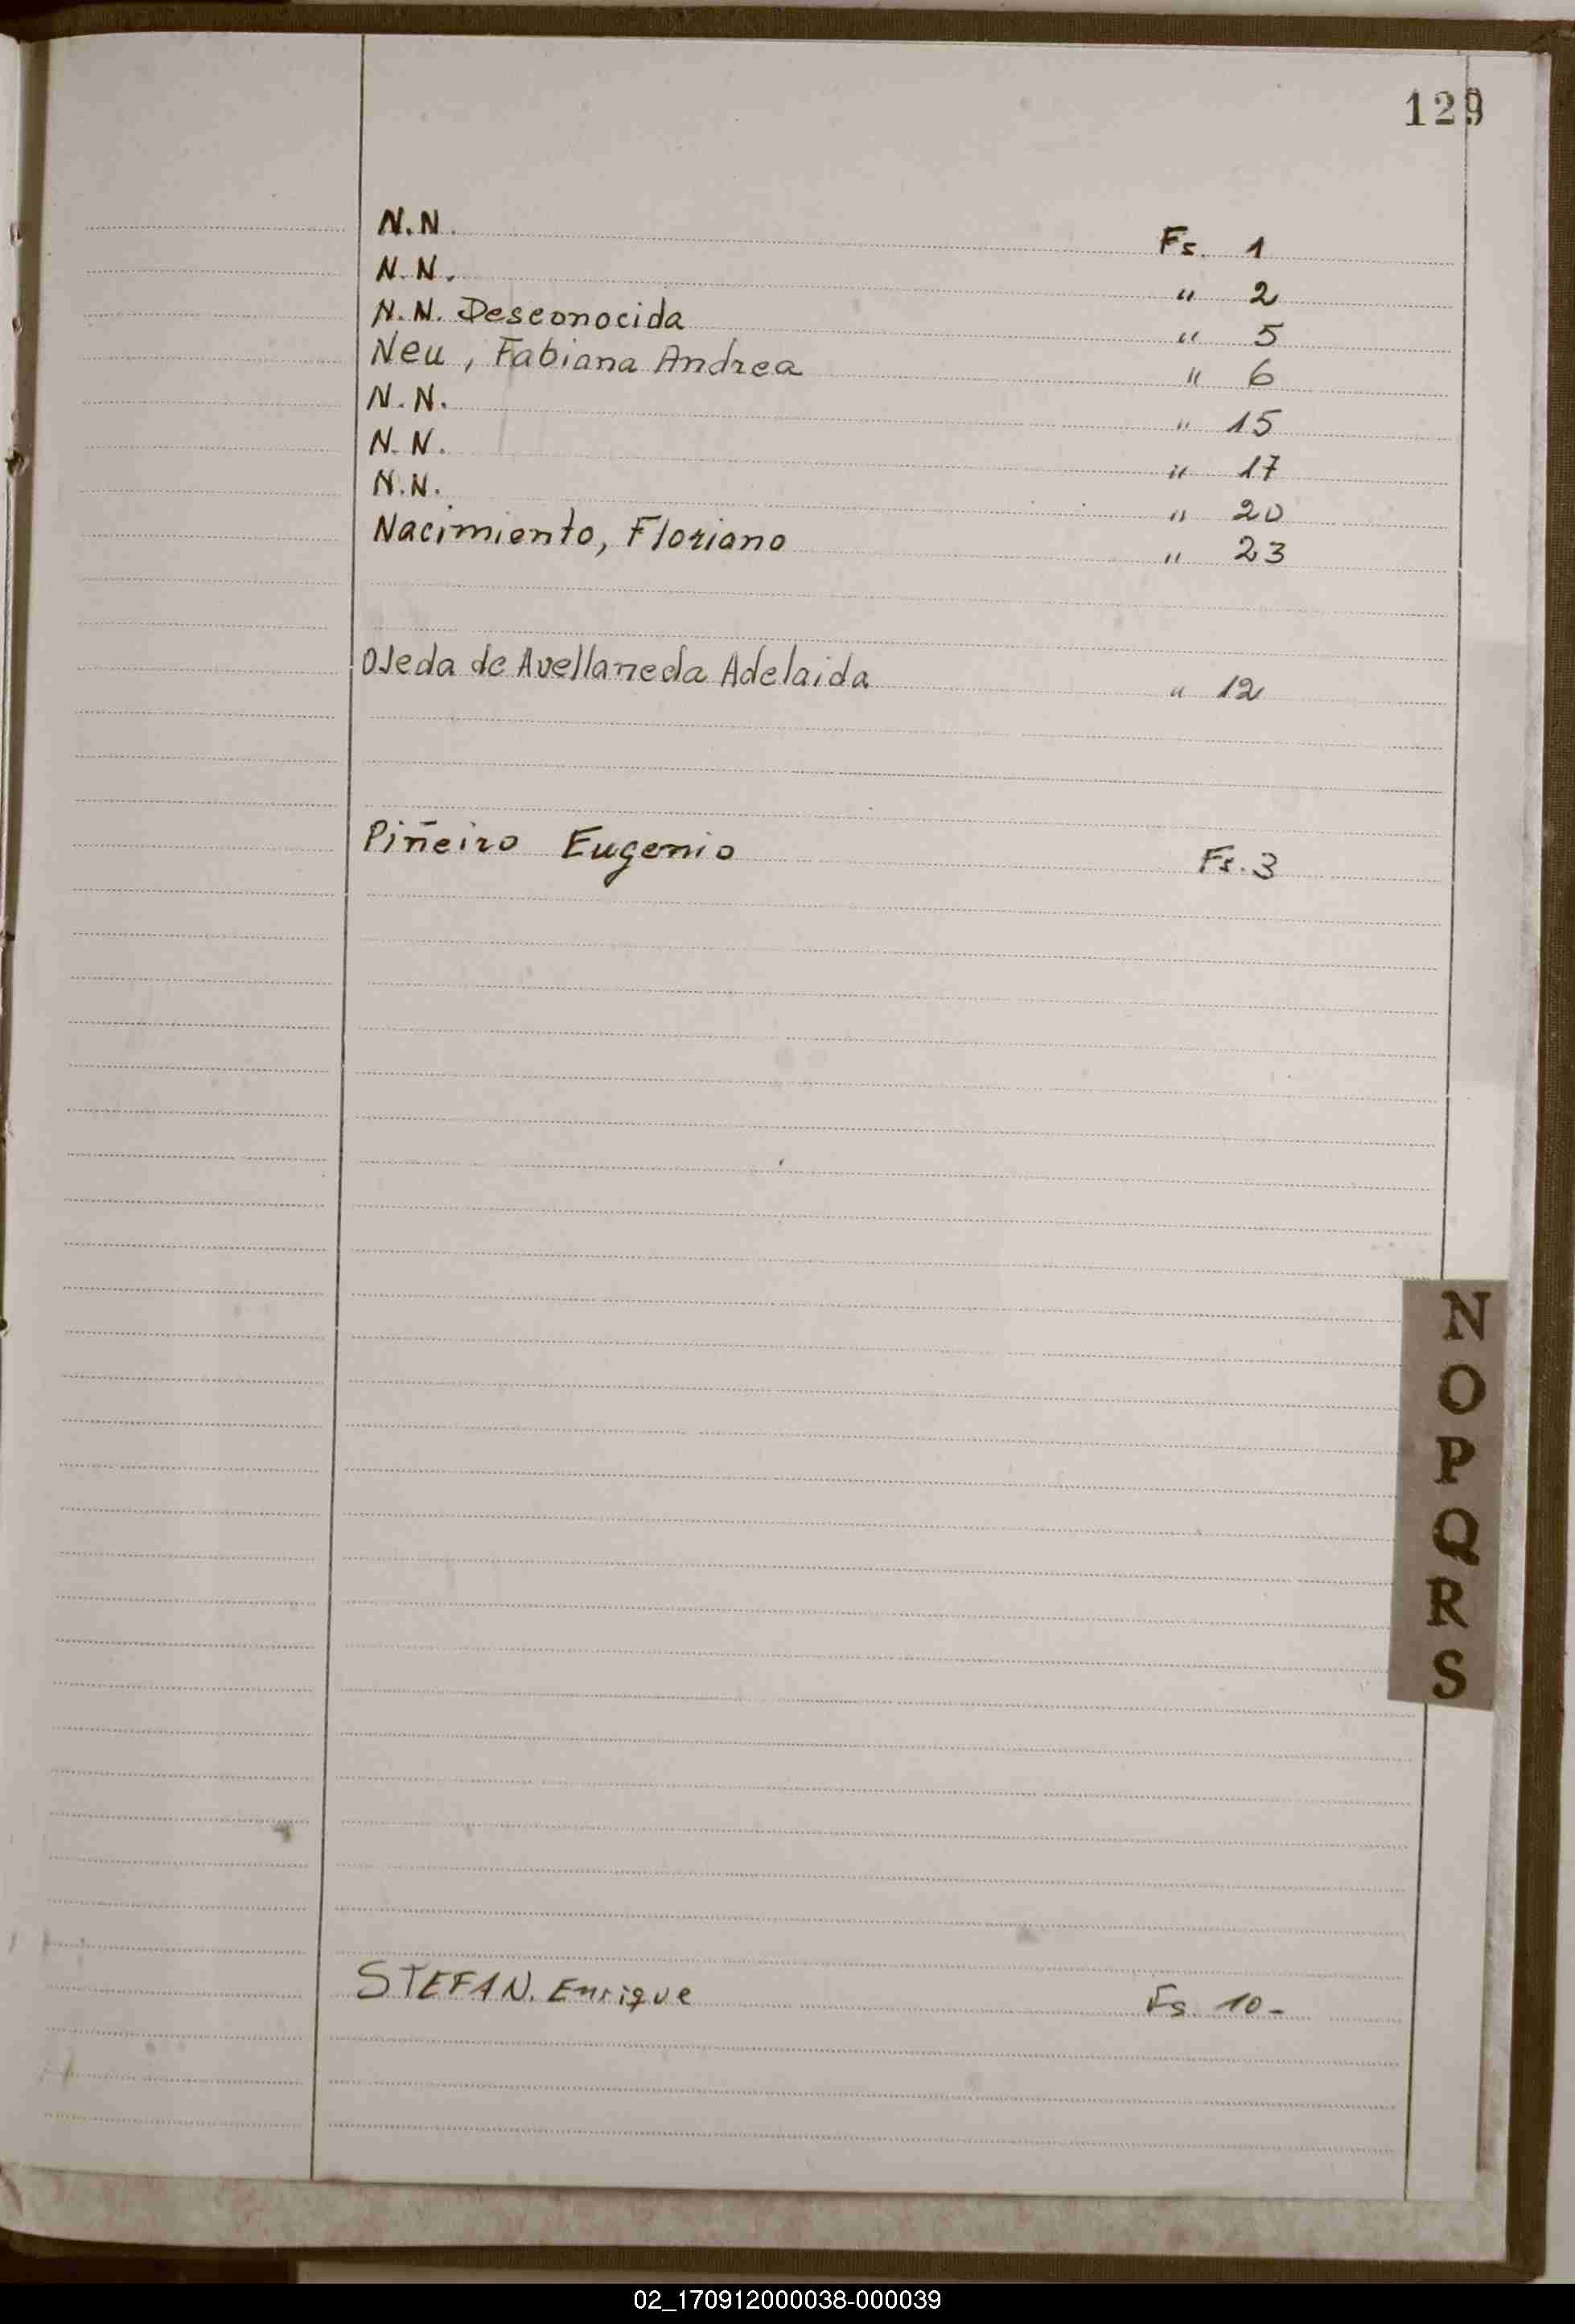 129
N.N. Fs. 1
N.N. " 2
N.N. Desconocida " 5
Neu, Fabiana Andrea " 6
N.N. " 15
N.N. " 17
N.N. " 20
Nacimiento, Floriano " 23
OJeda de Avellaneda Adelaida " 12
Piñeiro Eugenio Fs. 3
N
O
P
Q
R
S
STEFAN. Enrique Fs. 10-
02_170912000038-000039